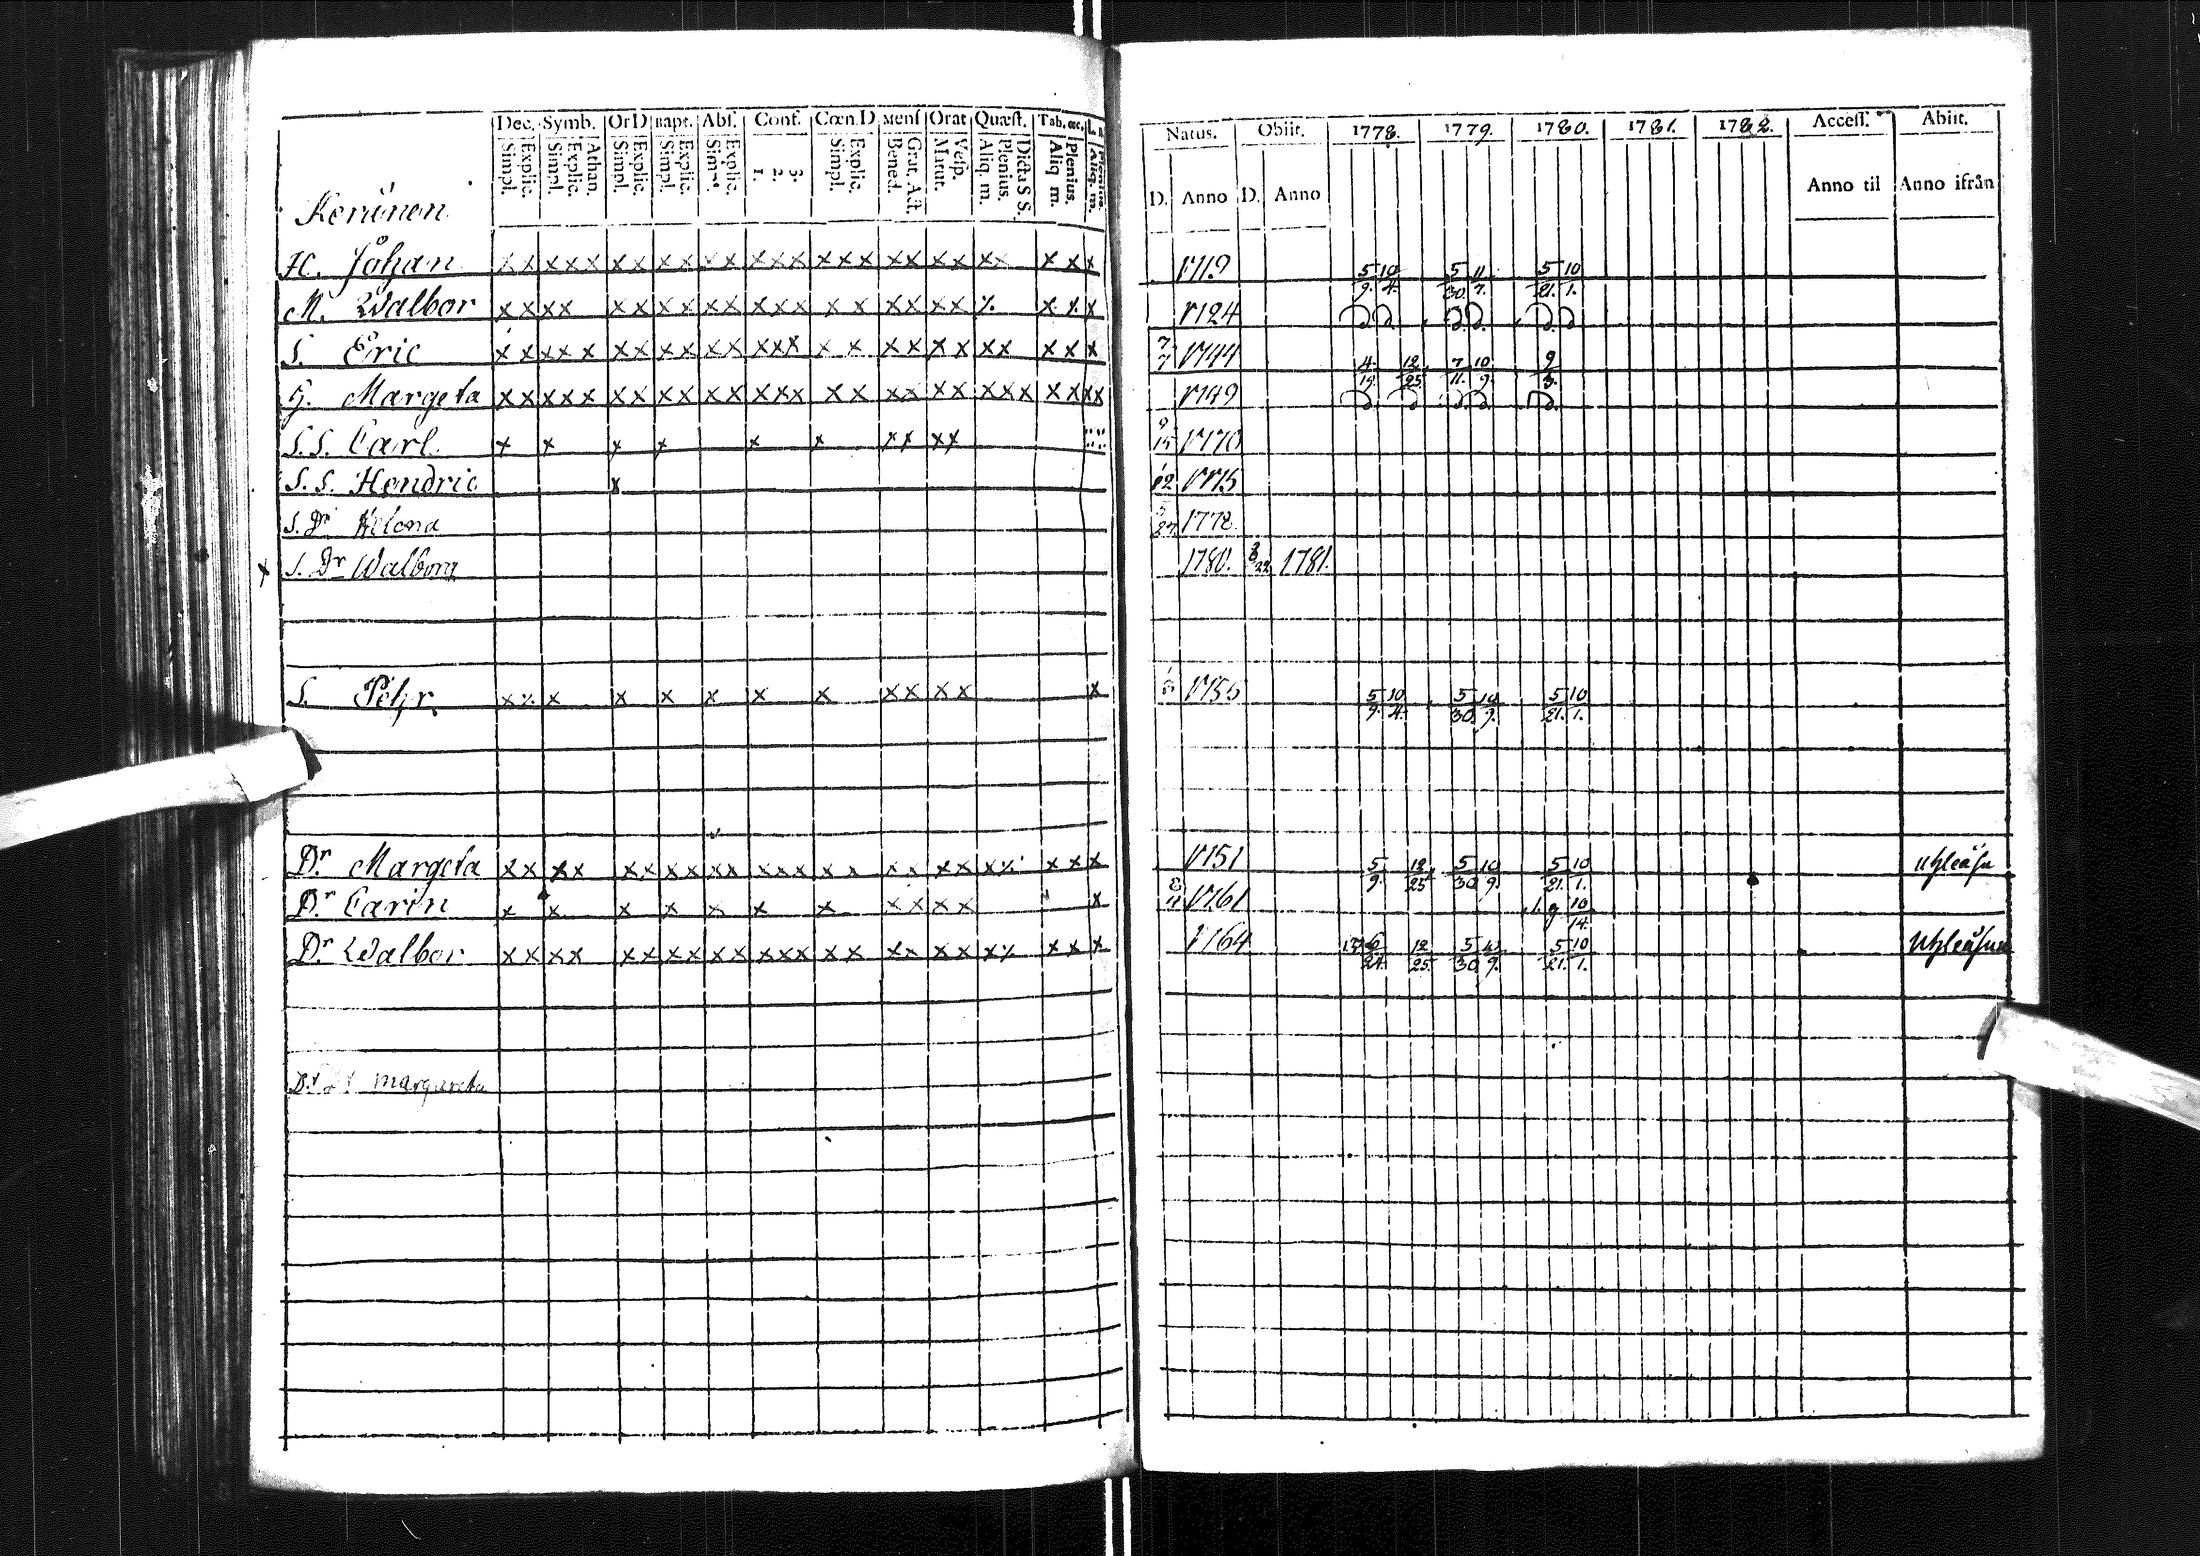 Dec. Symb. Or D Bapt. Abs. Conf. Cœn. D Mens Orat Quæst. Tab. œc.
Simpl. Explic. Simpl. Explic. Athan. Simpl. Explic. Simpl. Explic. Simpl. Explic. 1. 2. 3. Simpl. Explic. Bened. Grat. Act. Matut. Vesp. Aliq. m. Plenius. Dicta S S. Aliq m. Plenius. Aliq. m.
Kerinen
H. Johan x x x x x x x x x x x x x x x x x x x x x x x x x x
M. Walbor x x x x x x x x x x x x x x x x x x x x x
S. Eric x x x x x x x x x x x x x x x x x x x x x x x x x
G. Margeta x x x x x x x x x x x x x x x x x x x x x x x x x x x
S. S. Carl. x x x x x x x x x x
S. S. Hendric x
S. Dr Helena
x S. Dr Walborg
S. Pehr x x x x x x x x x x x x x
Dr Margeta x x x x x x x x x x x x x x x x x x x x x x x x
Dr Carin x x x x x x x x x x x x
Dr Walbor x x x x x x x x x x x x x x x x x x x x x x x
Margareta
Natus. Obiit. 1778. 1779. 1780. 1781. 1782. Access. Abiit.
D. Anno D. Anno Anno til Anno ifrån
1719 5/9. 10/4. 5/30. 11/7. 5/21. 10/1.
1724
7/7 1744 4/19. 12/25. 7/11. 10/9. 9/3.
1749
9/15 1770
1775
5/27 1778.
1780. 3/22 1781.
1755 5/9. 10/4. 5/30. 10/9. 5/21. 10/1.
1751 5/9. 12/25 5/30 10/9. 5/21. 10/1.
1761 10/14.
1764 6/24. 12/25. 5/30. 10/9. 5/21. 10/1.